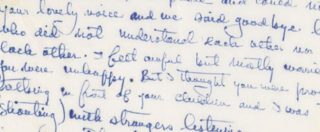 your lovely voice and we said goodbye l
who did not understand each other nor
each other. I feel awful but mostly worrie
you were unhappy. But I thought you were pro
talking in front of your children and I was
shouting) with strangers listening